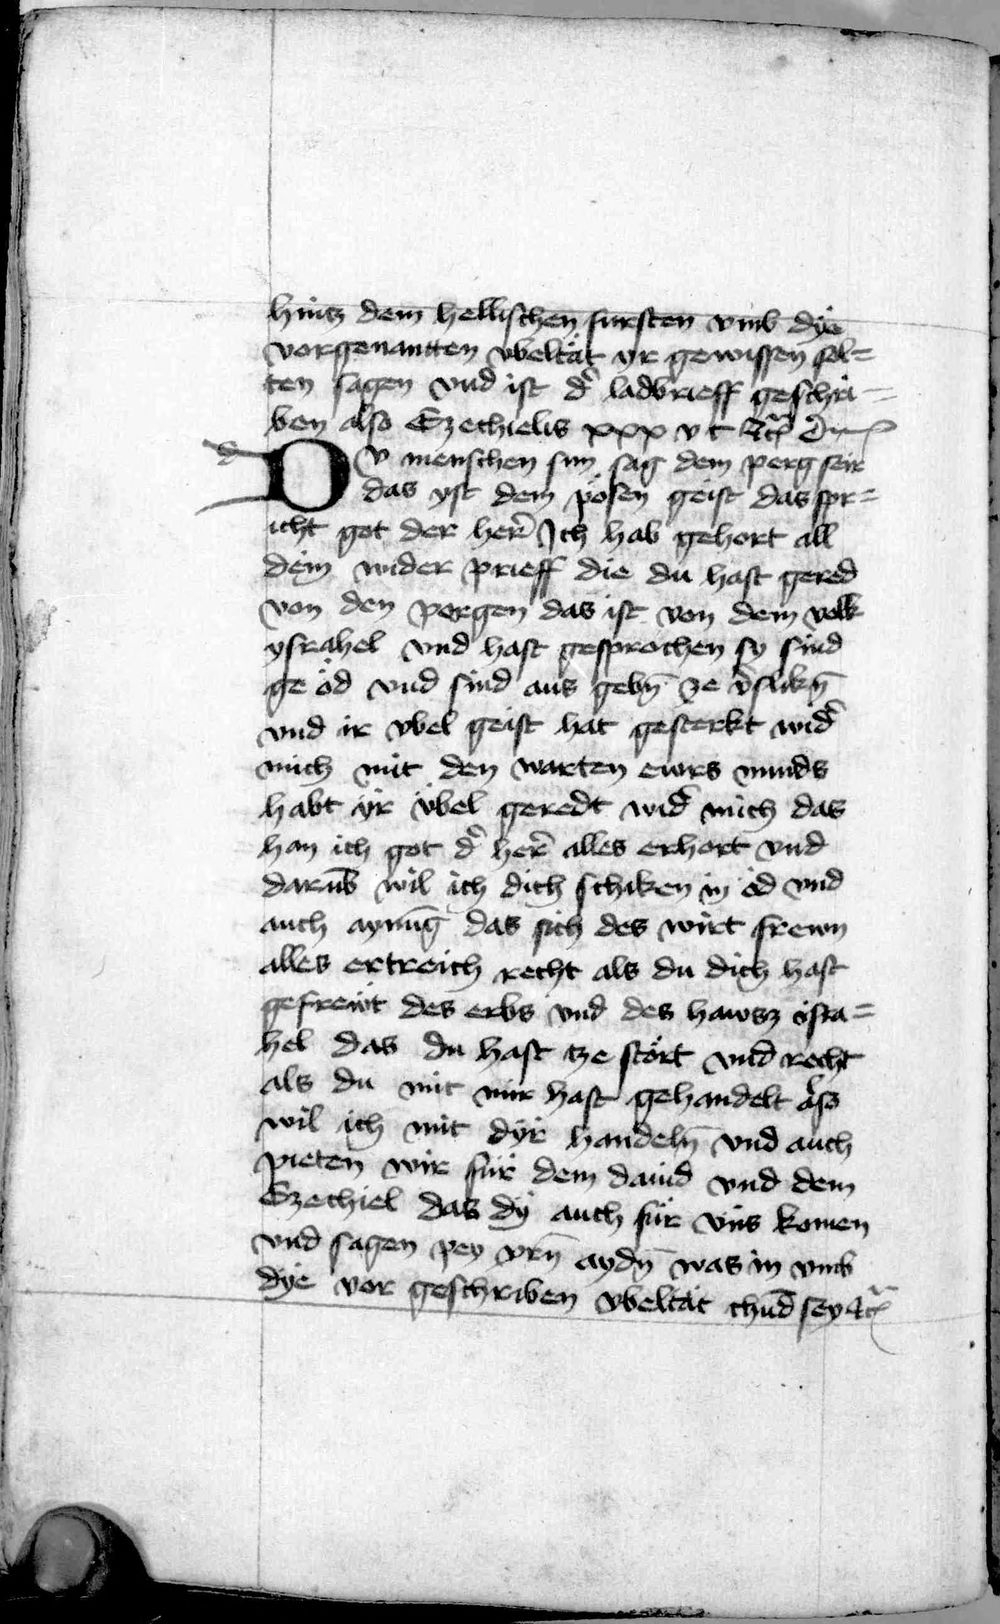 hintz dem hellischen fursten vmb dÿe
vorgenantten vbeltät yr gewissen sol=
ten sagen vnd ist d̉ ladbrieff geschri=
ben also Ezechielis xxx v t &c̃
d
DV menschen sun sag dem perg seir
das yst dem pösen geist das spr=
icht got der her̃ Ich hab gehort all
dein wider prieff die du hast gered
von den pergen das ist von dem volk
ysrahel vnd hast gesprochen sy sind
ge öd vnd sind aus gebn̄ ze v̉slikn̄
vnd ir vbel geist hat gesterkt wid̉
mich mit den warten ewrs munds
habt ÿr v̈bel geredt wid̉ mich das
han ich got d̉ her̃ alles erhort vnd
darūb wil ich dich schiken in öd vnd
auch aynūg das sich des wirt frewn
alles ertreich recht als du dich hast
gefrewt des erbs vnd des hawsz isra=
hel das du hast tze stört vnd recht
als du mit mir hast gehandelt also
wil ich mit dÿr handeln̄ vnd auch
pieten wir für dem dauid vnd dem
Ezechiel das dÿ auch für vns komen
vnd sagen pey yrn̄ aydn̄ was in vmb
dÿe vor geschriben vbeltät chūd sey &c̃